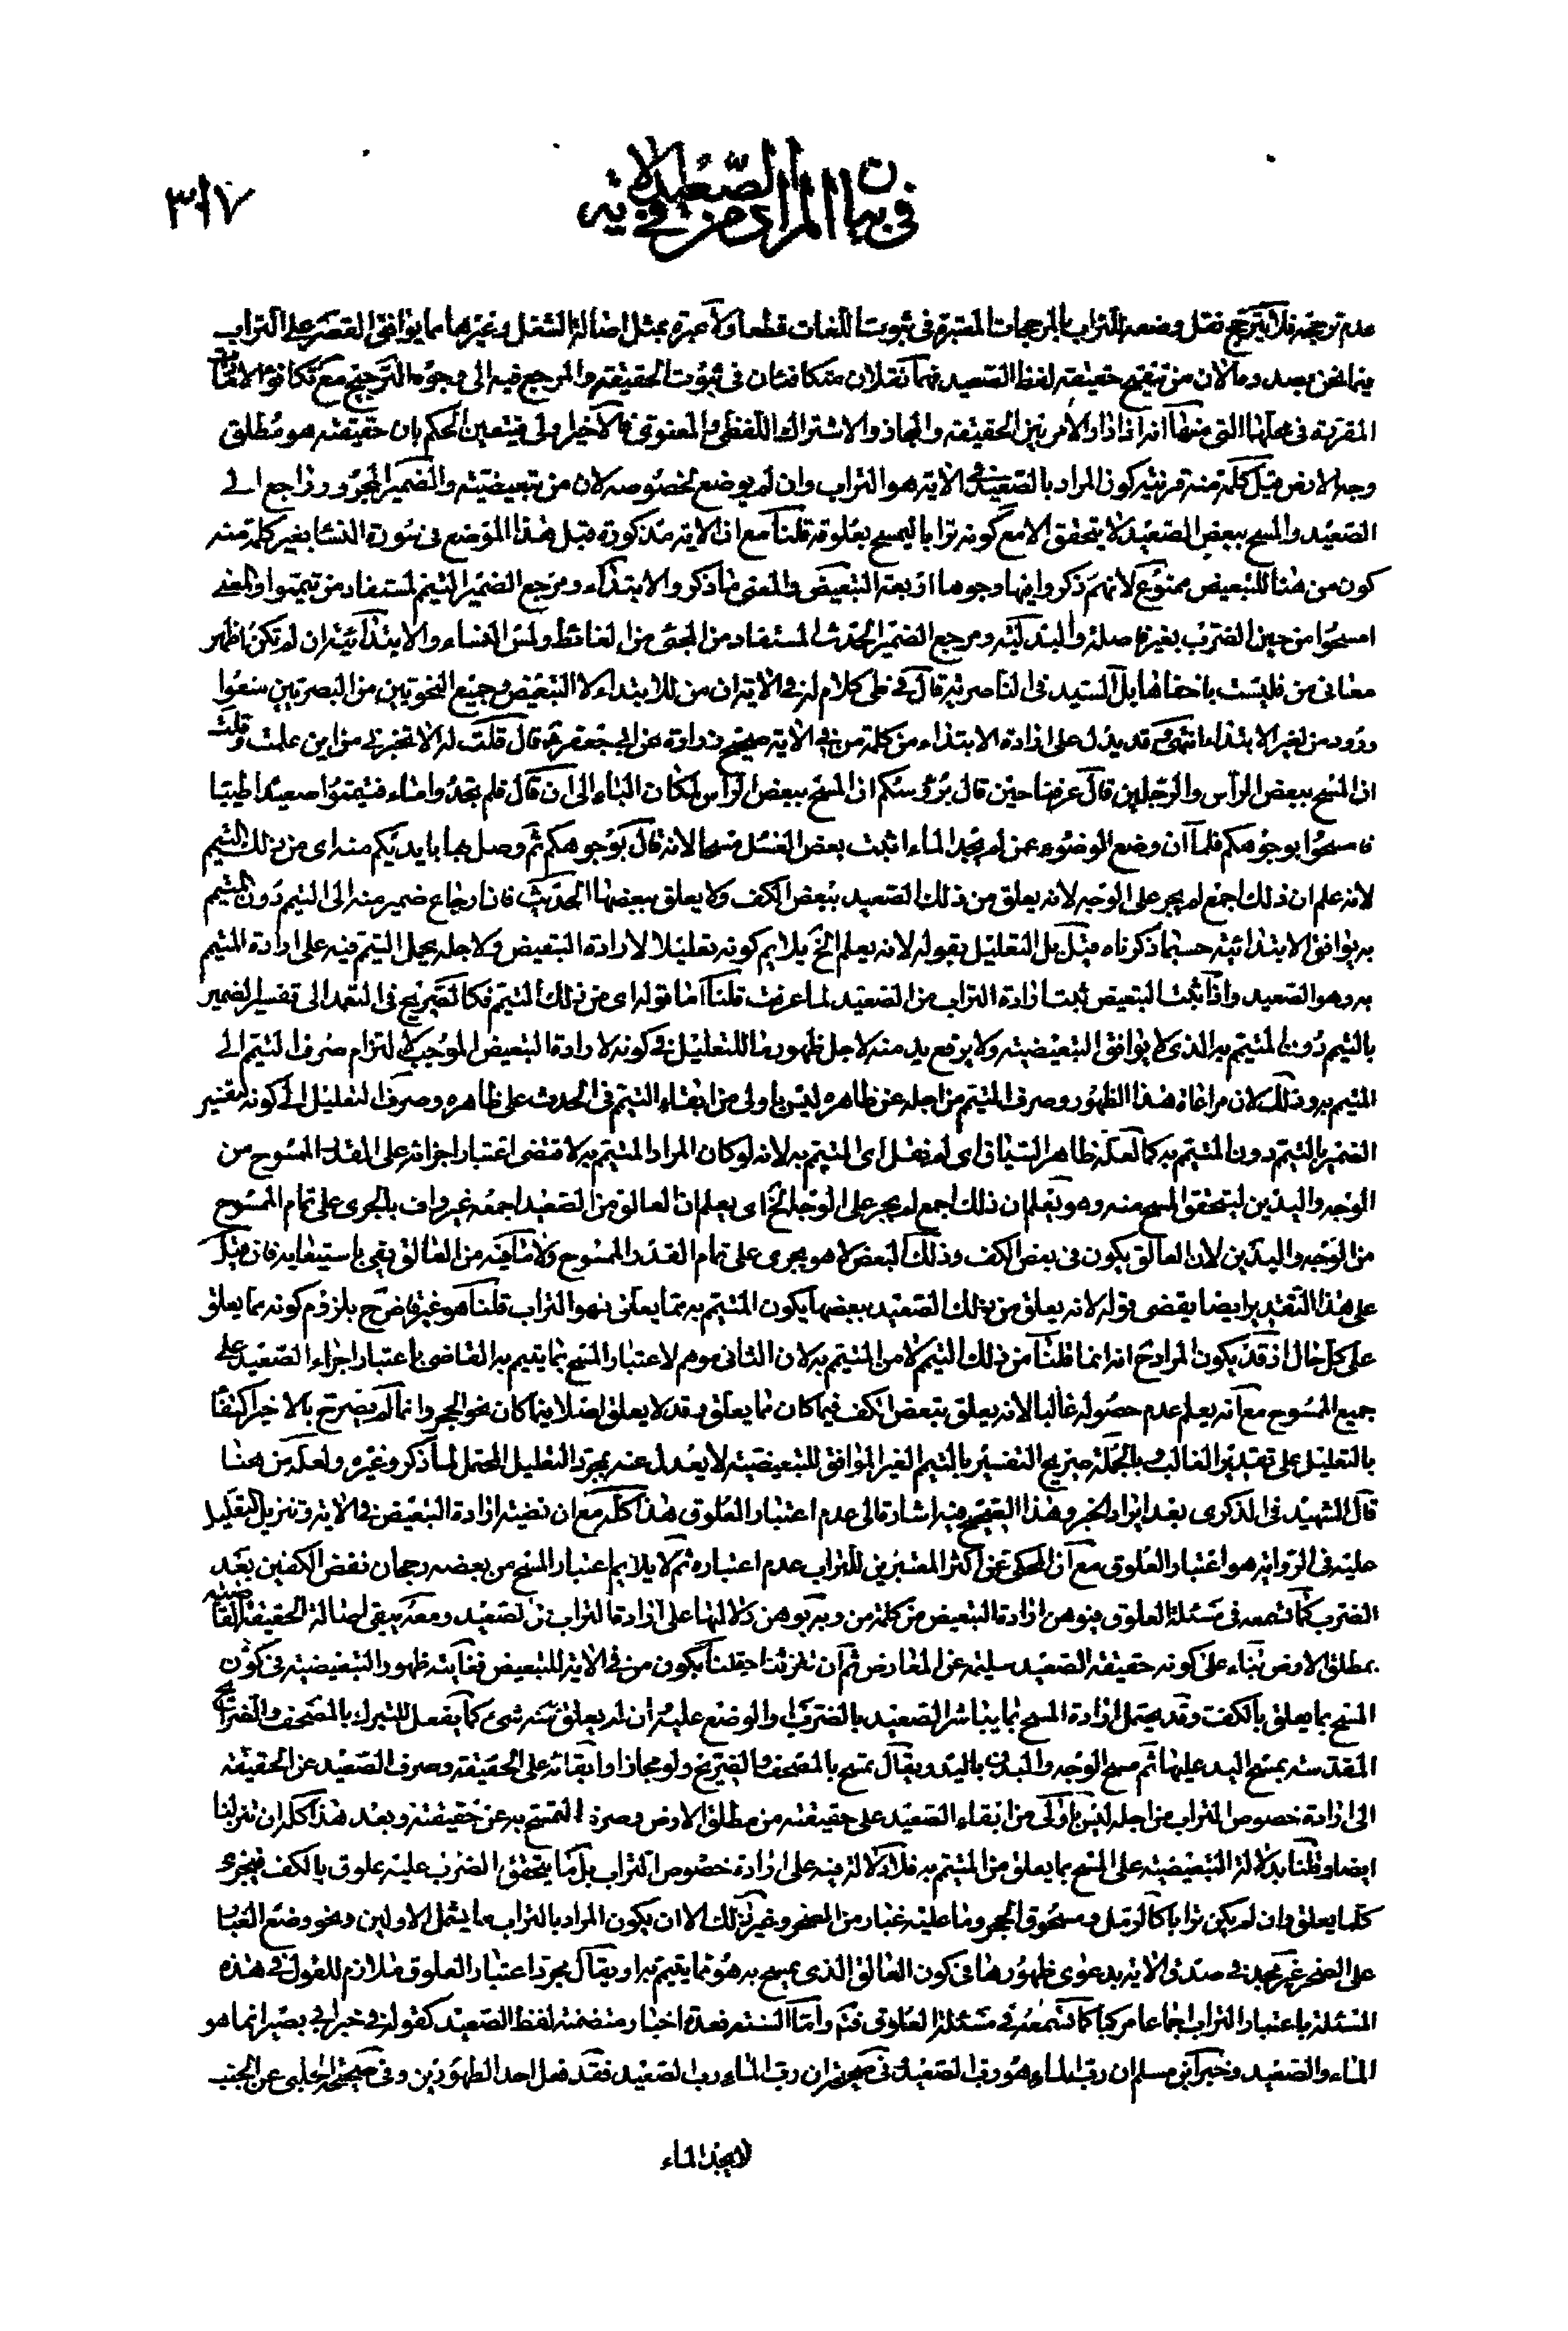 في بيان المراد من الصعيد في الاية
٣١٧
عدم ترجيحه فلا يترجح نقل وضعه للتراب بالمرجحات المعتبرة في ثبوت اللغات قطعا ولا عبرة بمثل اصالة الشغل وغيرها مما يوافق القصر على التراب
فيما نحن بصدده الان من تنقيح حقيقة لفظ الصعيد فهما نقلان متكافئان في ثبوت الحقيقة والمرجع فيه الى وجوه الترجيح مع تكافؤ
المقررة في محلها التي منها انه اذا دار الامر بين الحقيقة والمجاز والاشتراك اللفظي والمعنوي فالاخير اولى فيتعين الحكم بان حقيقته هو مطلق
وجه الارض قيل كلمة منه قرينة كون المراد بالصعيد في الاية هو التراب وان لم يوضع لخصوصه لان من تبعيضية والضمير المجرور راجع الى
الصعيد والمسح ببعض الصعيد لا يتحقق الا مع كونه ترابا ليمسح بعلوقه قلنا مع ان الاية مذكورة قبل هذا الموضع في سورة النسا بغير كلمة منه
كون من هنا للتبعيض ممنوع لانهم ذكروا فيها وجوها اربعة التبعيض والمعنى ما ذكر والابتداء ومرجع الضمير التيمم المستفاد من تيمموا والمعنى
امسحوا من حين الضرب بغير فاصلة والبدلية ومرجع الضمير الحدث المستفاد من المجئ من الغائط ولمس النساء والابتدائية ان لم تكن اظهر
معاني من فليست باخفاها بل السيد في الناصرية قال في طي كلام له في الاية ان من للابتداء لا التبعيض وجميع النحويين من البصريين منعوا
ورود من لغير الابتداء انتهى قد يدل على ارادة الابتداء من كلمة من في الاية صحيح زرارة عن ابي جعفر ع قال قلت له الا تخبرني من اين علمت وقلت
ان المسح ببعض الراس والرجلين قال عرفنا حين قال برؤسكم ان المسح ببعض الراس لمكان الباء الى ان قال فلم تجدوا ماء فتيمموا صعيدا طيبا
فامسحوا بوجوهكم فلما ان وضع الوضوء عمن لم يجد الماء اثبت بعض الغسل مسحا لانه قال بوجوهكم ثم وصل بها بايديكم منه اى من ذلك التيمم
لانه علم ان ذلك اجمع لم يجر على الوجه لانه يعلق من ذلك الصعيد ببعض الكف ولا يعلق ببعضها الحديث فان ارجاع ضمير منه الى التيمم دون المتيمم
به يوافق الابتدائية حسبما ذكرناه قيل بل التعليل بقوله لانه يعلم الخ يلايم كونه تعليلا لارادة التبعيض ولاجله يحمل التيمم فيه على ارادة المتيمم
به وهو الصعيد واذا ثبت التبعيض ثبت ارادة التراب من الصعيد لما عرفت قلنا اما قوله اى من ذلك التيمم فكالصريح في التعمد الى تفسير الضمير
بالتيمم دون المتيمم به الذي لا يوافق التبعيضية ولا يرفع يد منه لاجل ظهور ما للتعليل في كونه لارادة التبعيض الموجب لالتزام صرف التيمم الى
المتيمم به وذلك لان مراعاة هذا الظهور وصرف المتيمم من اجله عن ظاهره ليس باولى من ابقاء التيمم في الحدث على ظاهره وصرف التعليل الى كونه لتفسير
الضمير بالتيمم دون المتيمم به كما لعله ظاهر السياق اى لم نقل اى المتيمم به لانه لو كان المراد المتيمم به لاقتضى اعتبار اجزائه على المقدار الممسوح من
الوجه واليدين ليتحقق المسح منه وهو يعلم ان ذلك اجمع لم يجر على الوجه الخ اى يعلم ان العالق من الصعيد اجمعه غير واف بالجرى على تمام الممسوح
من الوجه واليدين لان العالق يكون في بعض الكف وذلك البعض لا هو يجرى على تمام القدر الممسوح ولا ما فيه من العالق يفي باستيعابه فان قيل
على هذا التقدير ايضا يقضى قوله لانه يعلق من ذلك الصعيد ببعضها يكون المتيمم به مما يعلق فهو التراب قلنا هو غير مصرح بلزوم كونه مما يعلق
على كل حال اذ قد يكون المراد ح انه انما قلنا من ذلك التيمم لا من المتيمم به لان الثاني موهم لاعتبار المسح بما يتيمم به القاضي باعتبار اجزاء الصعيد على
جميع الممسوح مع انه يعلم عدم حصوله غالبا لانه يعلق ببعض الكف فيما كان مما يعلق وقد لا يعلق اصلا فيما كان نحو الحجر وانما لم يصرح بالاخير اكتفاء
بالتعليل على تقدير الغالب وبالجملة صريح التفسير بالتيمم الغير الموافق للتبعيضية لا يعدل عنه بمجرد التعليل المحتمل لما ذكر وغيره ولعله من هنا
قال الشهيد في الذكرى بعد ايراد الخبر وهذا الصحيح فيه اشارة الى عدم اعتبار العلوق هذا كله مع ان قضية ارادة التبعيض في الاية وتنزيل التعليل
عليه في الرواية هو اعتبار العلوق مع ان المحكي عن اكثر المعتبرين للتراب عدم اعتباره ثم لا يلايم اعتبار المسح من بعضه رجحان نفض الكفين بعد
الضرب كما تسمعه في مسئلة العلوق فيوهن ارادة التبعيض من كلمة من وبه يوهن دلالتها على ارادة التراب من الصعيد ومعه يبقى اصالة الحقيقة القاضية
بمطلق الارض بناء على كونه حقيقة الصعيد سليمة عن المعارض ثم ان تنزلنا وقلنا بكون من في الاية للتبعيض فغايته ظهور التبعيضية في كون
المسح بما يعلق بالكف وقد يحتمل ارادة المسح بما يباشر الصعيد بالضرب او الوضع عليه وان لم يعلق منه شئ كما يفعل للتبرك بالمصحف والضرائح
المقدسة بمسح اليد عليها ثم مسح الوجه والبدن باليد ويقال تمسح بالمصحف والضريح ولو مجازا وابقائه على الحقيقة وصرف الصعيد عن الحقيقة
الى ارادة خصوص التراب من اجله ليس باولى من ابقاء الصعيد على حقيقته من مطلق الارض وصرف التمسح به عن حقيقته وبعد هذا كله ان تنزلنا
ايضا وقلنا بدلالة التبعيضية على المسح بما يعلق من المتيمم به فلا دلالة فيه على ارادة خصوص التراب بل ما يتحقق الضرب عليه علوق بالكف فيجزى
كلما يعلق وان لم يكن ترابا كالرمل ومسحوق الحجر وما عليه غبار من الصخر وغير ذلك الا ان يكون المراد بالتراب ما يشمل الاولين ونحو وضع الغبار
على الصخر غير مجد في صدق الاية بدعوى ظهورها في كون العالق الذي يمسح به هو ما يتيمم به او يقال مجرد اعتبار العلوق ملازم للقول في هذه
المسئلة باعتبار التراب اجماعا مركبا كما تسمعه في مسئلة العلوق فتم واما السنة فعدة اخبار متضمنة لفظ الصعيد كقوله في خبر ابي بصير انما هو
الماء والصعيد وخبر ابن مسلم ان رب الماء هو رب الصعيد وفي صحيحة ان رب الماء رب الصعيد فقد فعل احد الطهورين وفي صحيحة الحلبي عن الجنب
لا يجد الماء